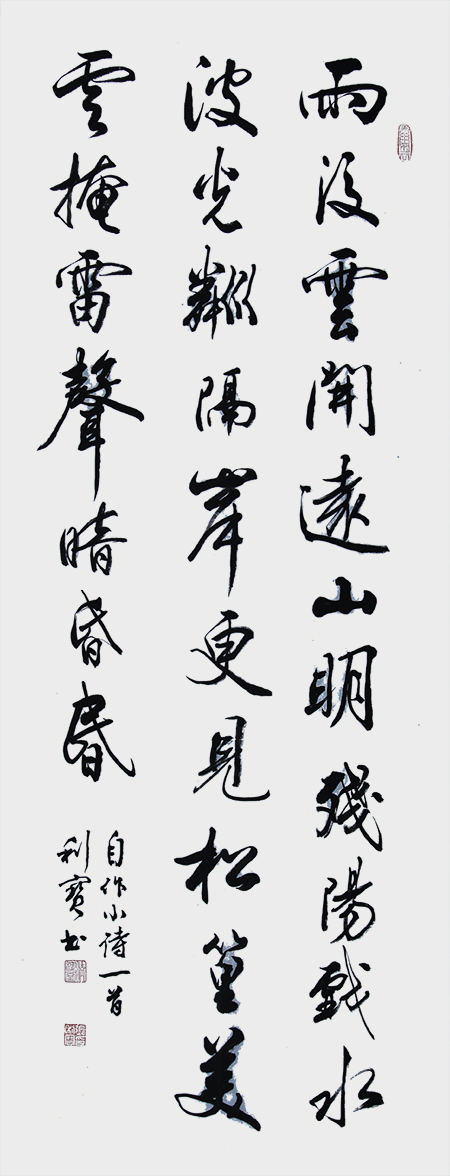 雨後雲開遠山明殘陽戲水
波光粼隔岸更見松篁美
雲掩雷聲暗昏昏
自作小詩一首
利寶书